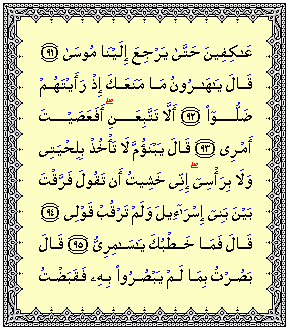 عَٰكِفِينَ حَتَّىٰ يَرْجِعَ إِلَيْنَا مُوسَىٰ ٩١
قَالَ يَٰهَٰرُونُ مَا مَنَعَكَ إِذْ رَأَيْتَهُمْ
ضَلُّوٓا۟ ٩٢ أَلَّا تَتَّبِعَنِ ۖ أَفَعَصَيْتَ
أَمْرِى ٩٣ قَالَ يَبْنَؤُمَّ لَا تَأْخُذْ بِلِحْيَتِى
وَلَا بِرَأْسِىٓ ۖ إِنِّى خَشِيتُ أَن تَقُولَ فَرَّقْتَ
بَيْنَ بَنِىٓ إِسْرَٰٓءِيلَ وَلَمْ تَرْقُبْ قَوْلِى ٩٤
قَالَ فَمَا خَطْبُكَ يَٰسَٰمِرِىُّ ٩٥ قَالَ
بَصُرْتُ بِمَا لَمْ يَبْصُرُوا۟ بِهِۦ فَقَبَضْتُ